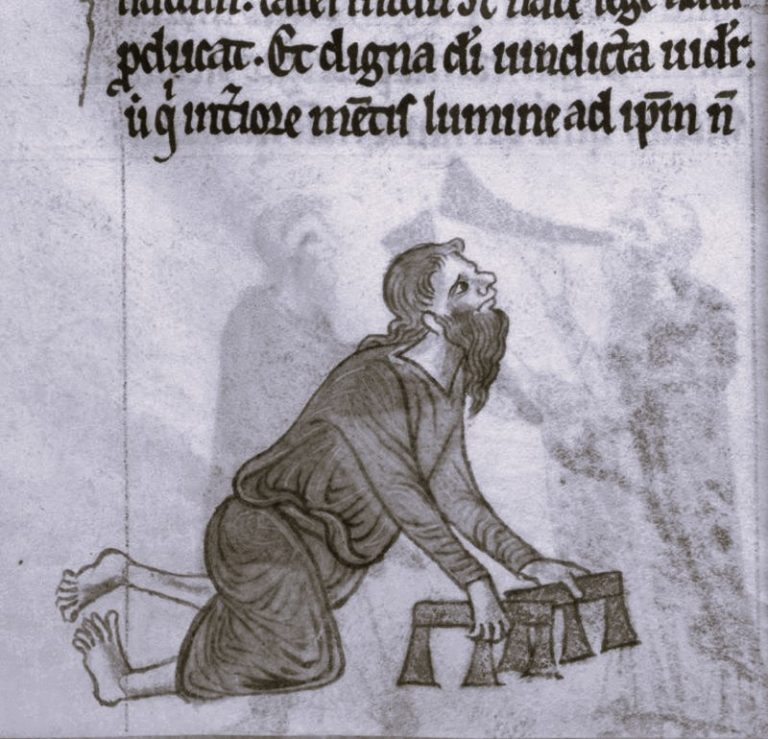 ꝓducat. Et digna di̅ uindicta uidr̅.
ut̅ qͥ int̾iore me̅tis lumine ad ip̅m n̅